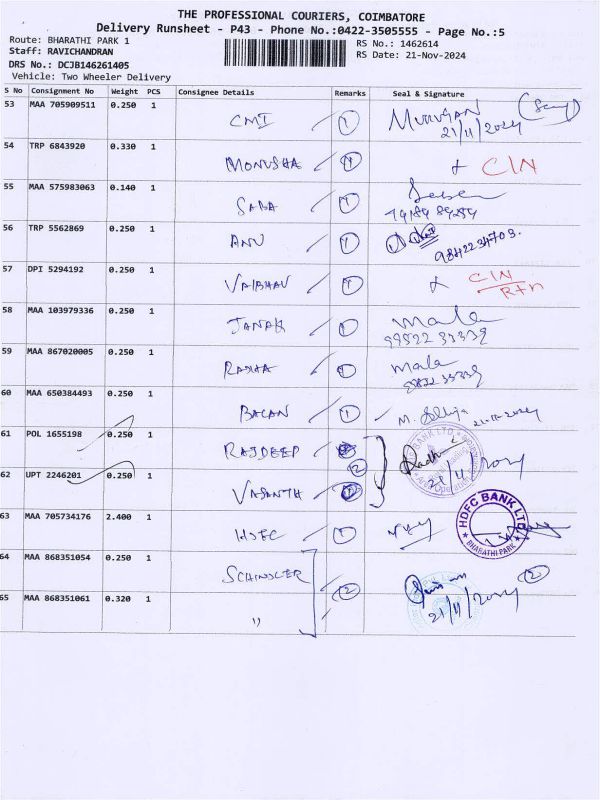 THE PROFESSIONAL COURIERS, COIMBATORE
Delivery Runsheet - P43 - Phone No.:0422-3505555 - Page No.:5
Route: BHARATHI PARK 1
RS No.: 1462614
Staff: RAVICHANDRAN
RS Date: 21-Nov-2024
DRS No.: DCJB146261405
Vehicle: Two Wheeler Delivery
S No Consignment No Weight PCS Consignee Details Remarks Seal & Signature
53 MAA 705909511 0.250 1 CMI 1 MURUGAN
21/11/2024
54 TRP 6843920 0.330 1 MONUSHA 1 CIN
55 MAA 575983063 0.140 1 SABA 1
56 TRP 5562869 0.250 1 ANU 1
57 DPI 5294192 0.250 1 VAIBHAV 1 CIN
Rtn
58 MAA 103979336 0.250 1 JANAK 1 mala
59 MAA 867020005 0.250 1 RADHA 1 mala
60 MAA 650384493 0.250 1 BALAN 1 M.
61 POL 1655198 0.250 1 RAJDEEP
2
21/11/2024
62 UPT 2246201 0.250 1 VASANTH
63 MAA 705734176 2.400 1 1
HDFC BANK LTD
BHARATHI PARK
64 MAA 868351054 0.250 1 SCHINDLER 2 2
21/11/2024
65 MAA 868351061 0.320 1 "